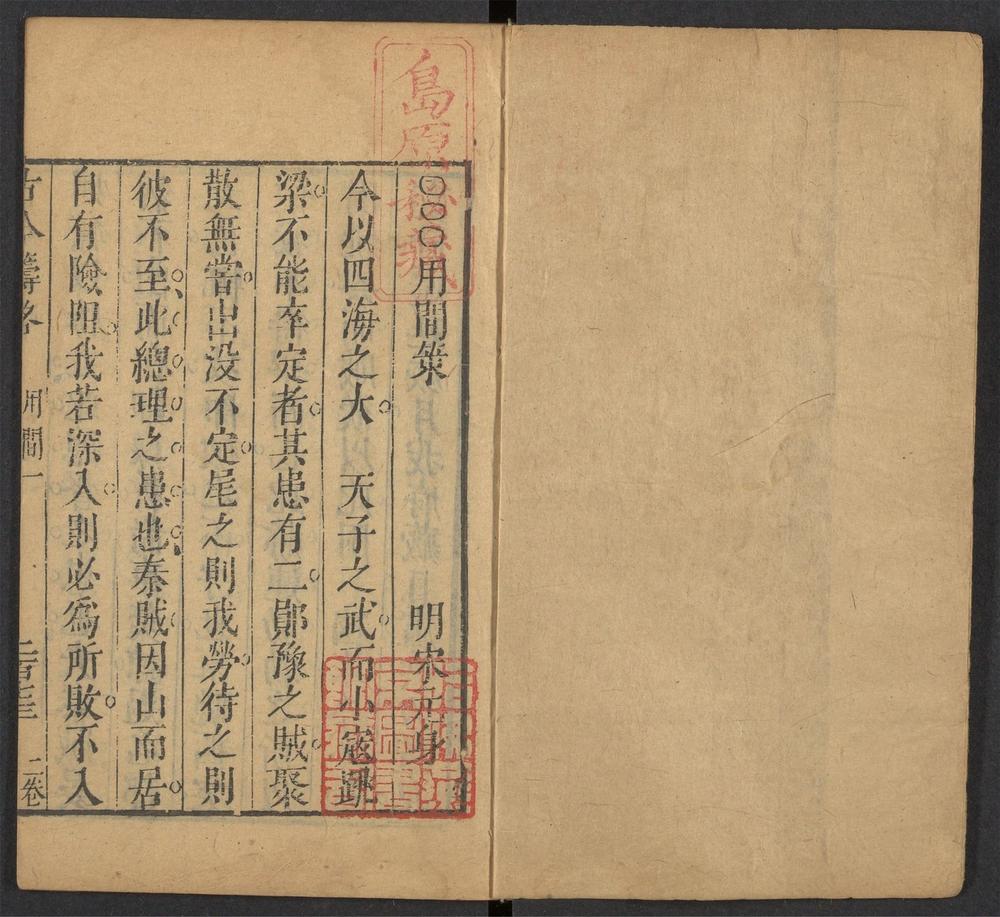 島原秘藏
○○○用間筞 明宋元身
今以四海之大 天子之武而小寇跳
梁不能卒定者其患有二鄖豫之賊聚
散無嘗出没不定尾之則我勞待之則
彼不至此總理之患也秦賊因山而居
自有險阻我若深入則必爲所敗不入
古今籌略 用間一 二卷